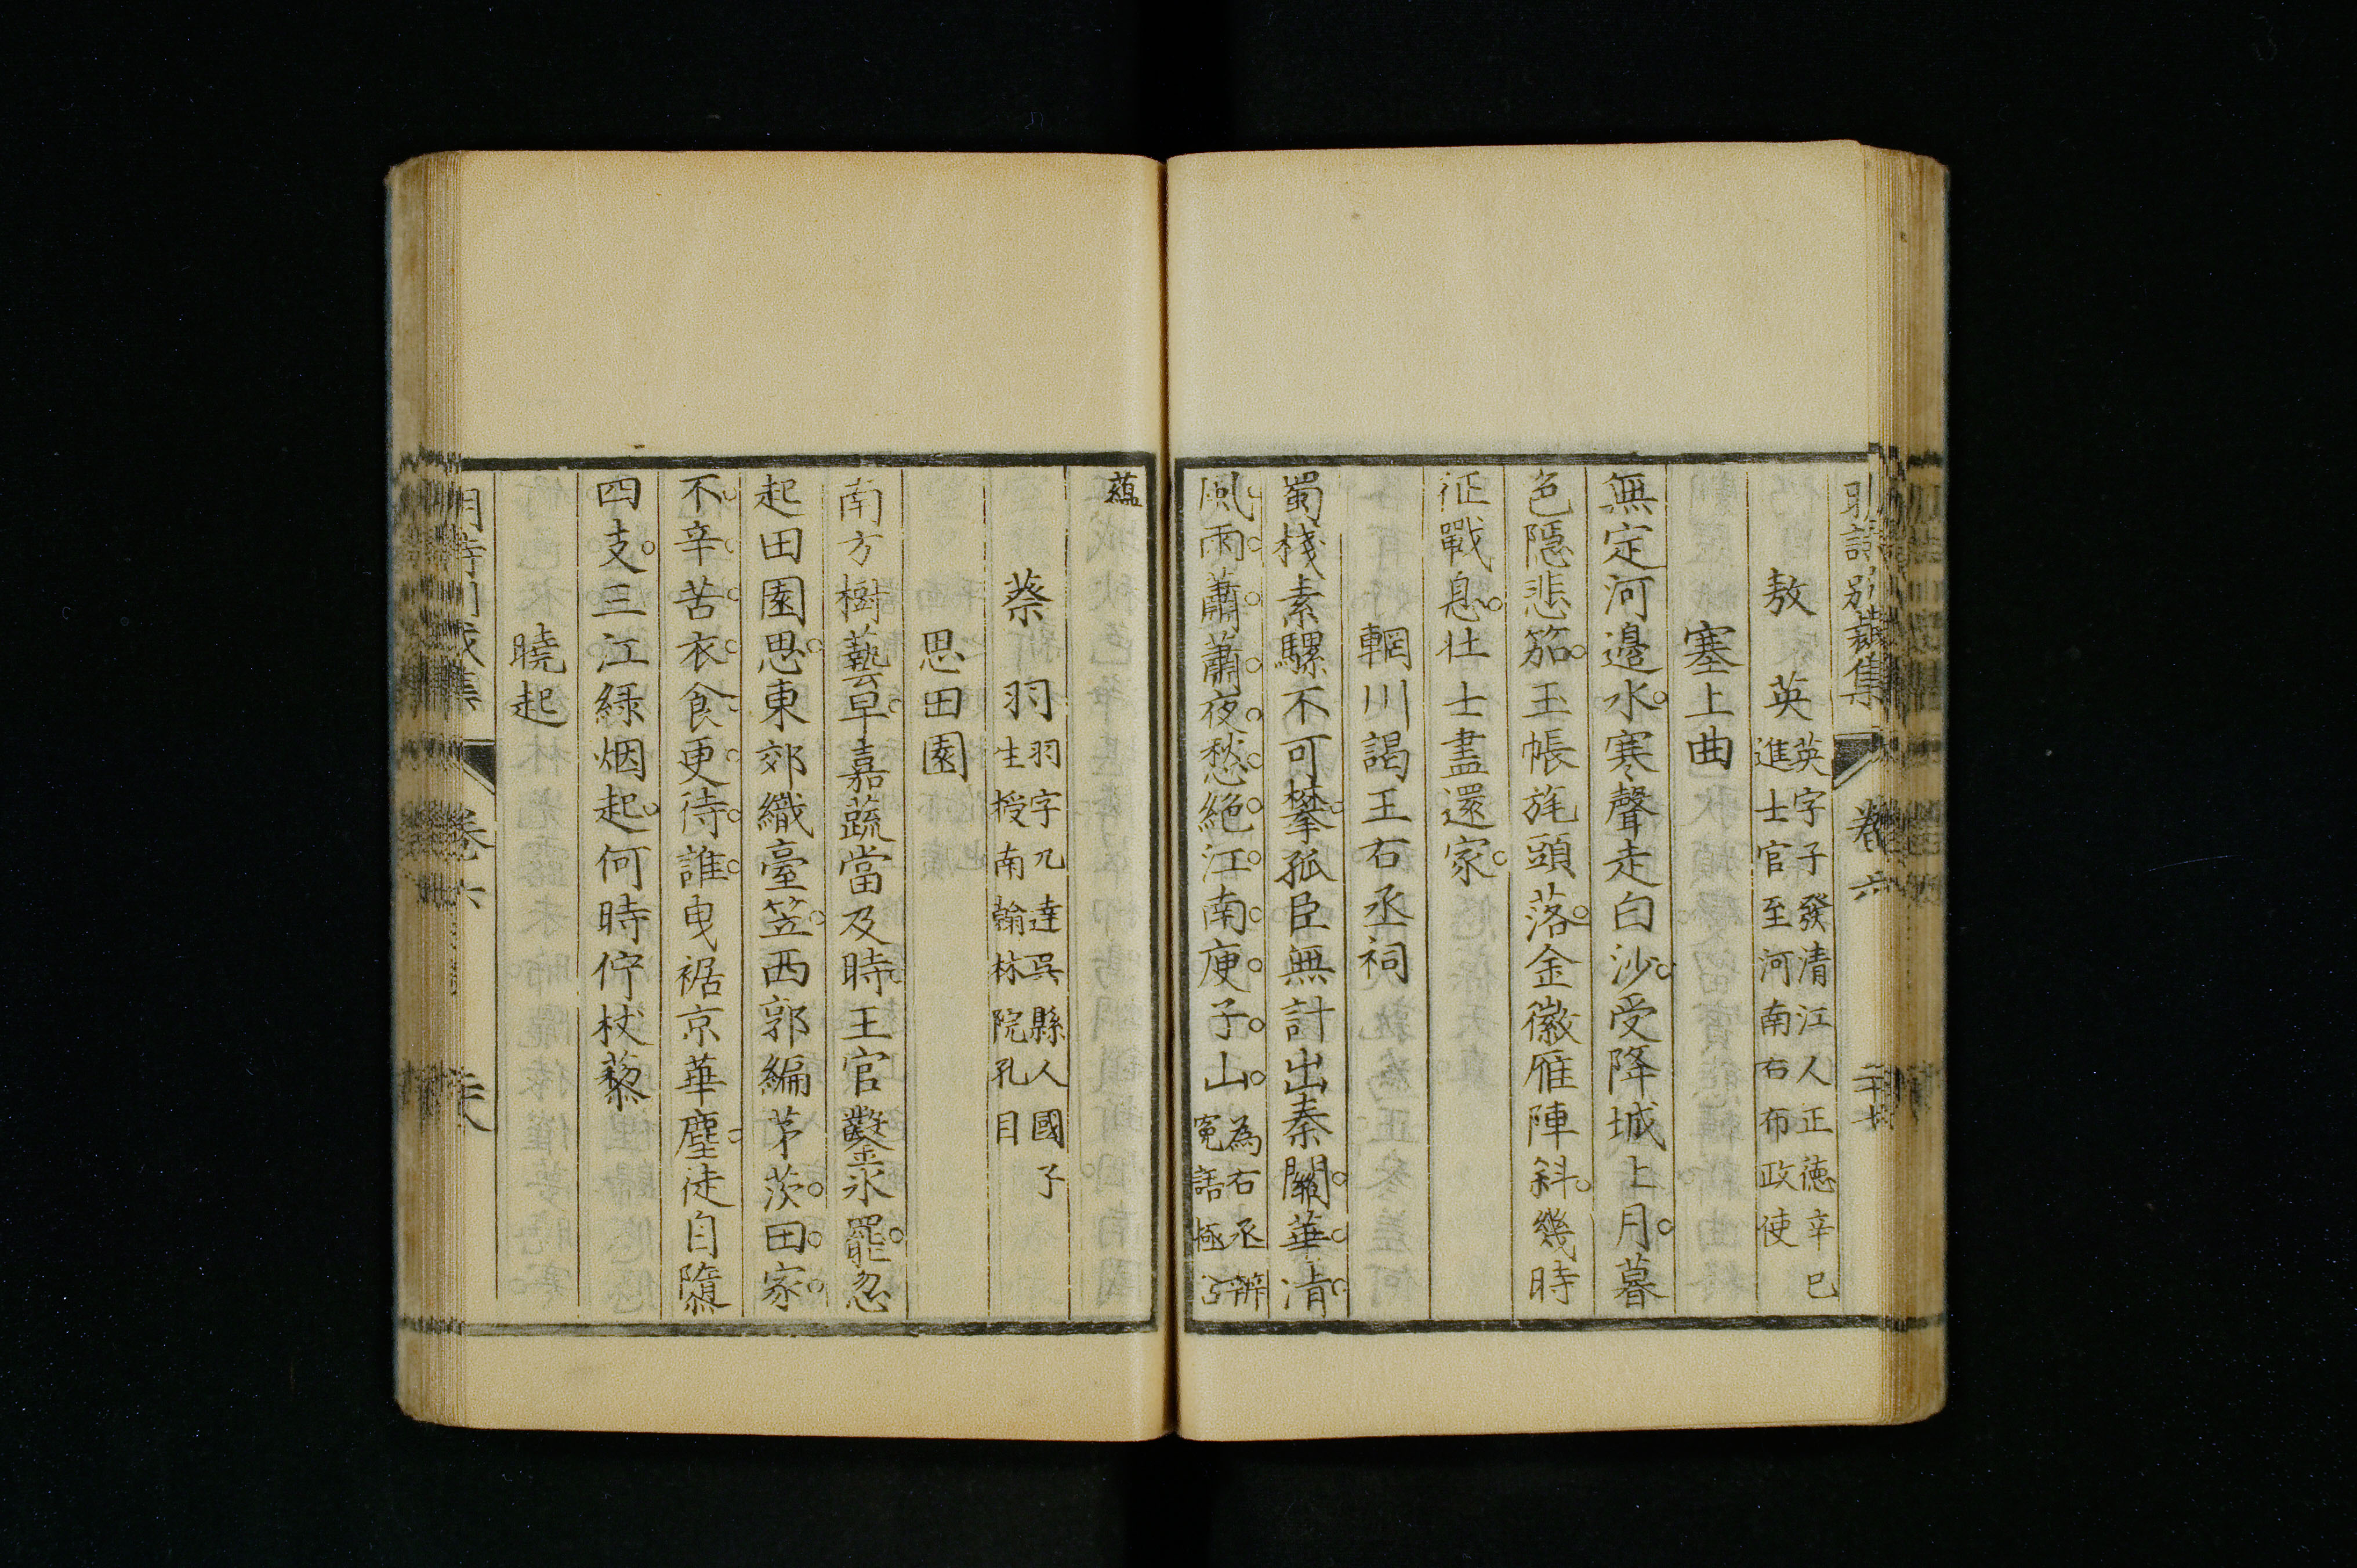 明詩別裁集 卷六 二十七
敖英 英字子發清江人正德辛巳
進士官至河南右布政使
塞上曲
無定河邉水。寒聲走白沙。受降城上月。暮
色隱悲笳。玉帳旄頭落。金徽雁陣斜。幾時
征戰息。壮士盡還家。
輞川謁王右丞祠
蜀棧素騾不可攀。孤臣無計出秦關。華清
風雨蕭蕭夜。愁絕江南庾子山。為石丞辨
冤語極
蘊
蔡羽 羽字九逵吳縣人國子
生授南翰林院孔目
思田園
南方樹藝早。嘉蔬當及時。王官鑿氷罷。忽
起田園思。東郊織臺笠。西郭編茅茨。田家
不辛苦。衣食更待誰。曳裾京華塵。徒自隳
四支。三江緑烟起。何時佇杖藜
曉起
明詩別裁集 卷六